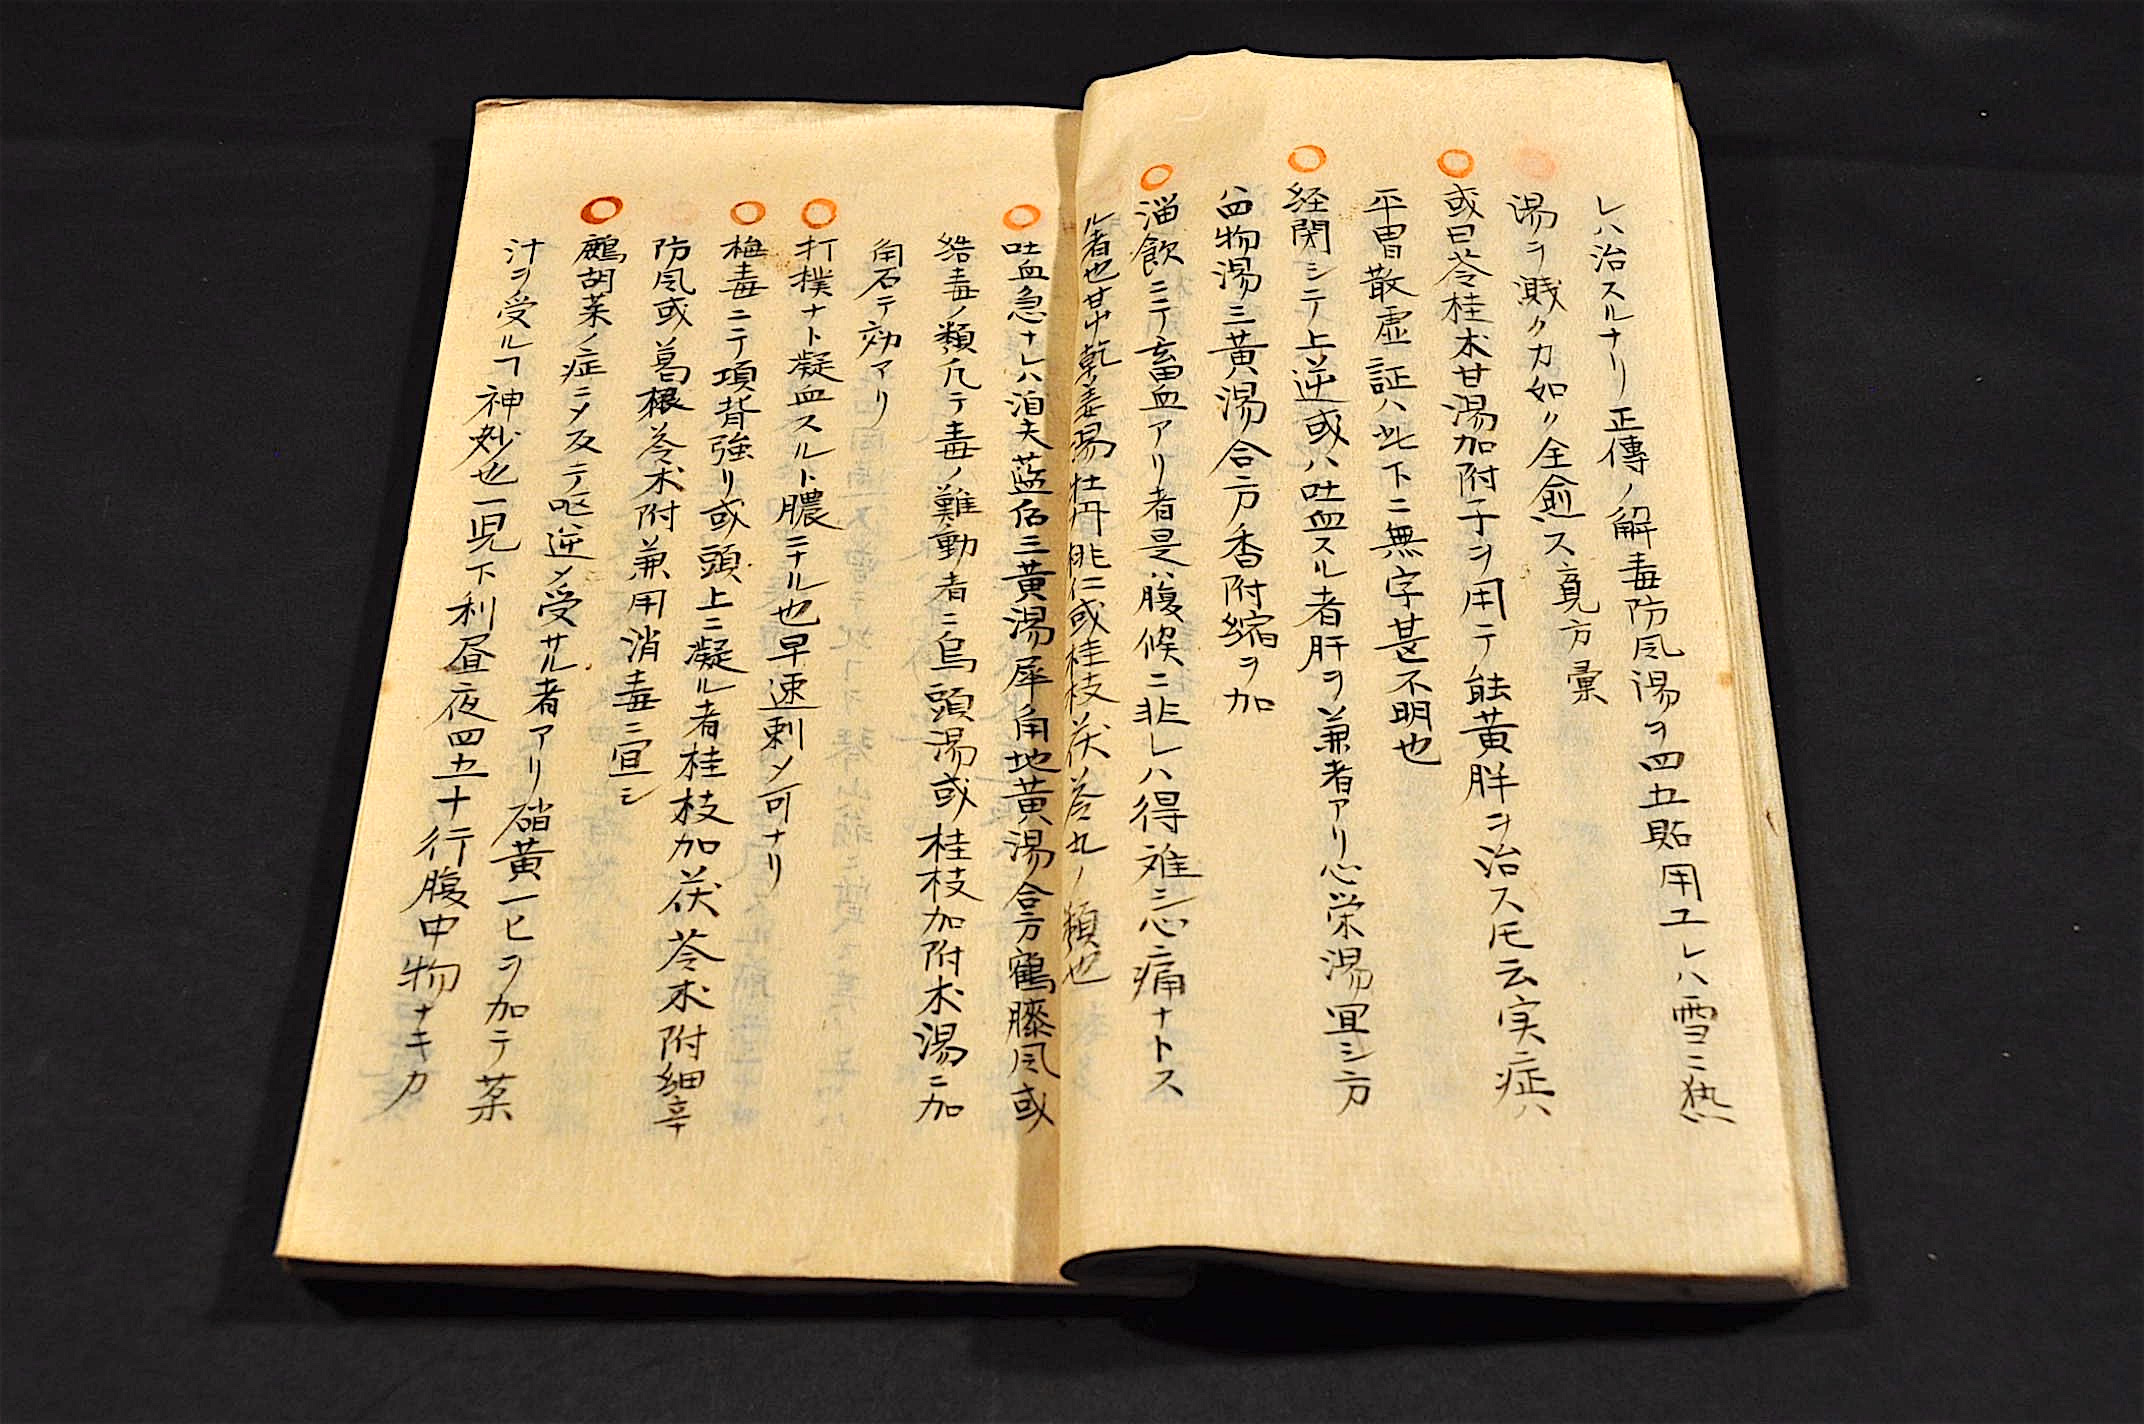 レハ治スルナリ正傳ノ解毒防風湯ヲ四五貼用エレハ雪ニ熱
湯ヲ濺クカ如ク全愈ス 方彙
或曰苓桂朮甘湯加附子ヲ用テ能黄胖ヲ治スト云実症ハ
平胃散虚証ハ此下ニ無字甚不明也
経閉シテ上逆或ハ吐血スル者肝ヲ兼者アリ心栄湯宜シ方
四物湯三黄湯合方香附縮ヲ加
溜飲ニテ畜血アリ者是ハ腹候ニ非レハ得难シ心痛ナトス
ル者也甘草乾姜湯牡丹桃仁或桂枝茯苓丸ノ類也
吐血急ナレハ泊夫藍伯三黄湯犀角地黄湯合方鶴膝風或
結毒ノ類凡テ毒ノ難動者ニ烏頭湯或桂枝加附朮湯ニ加
角石テ効アリ
打撲ナト凝血スルト膿ニナル也早速刺メ可ナリ
梅毒ニテ項背強リ或頭上ニ凝ル者桂枝加茯苓朮附細辛
防風或葛根苓朮附兼用消毒ニ宜シ
鷓胡菜ノ症ニメ反テ呕逆メ受サル者アリ硝黄一ヒヲ加テ菜
汁ヲ受ルヿ神妙也一児下利昼夜四五十行腹中物ナキカ